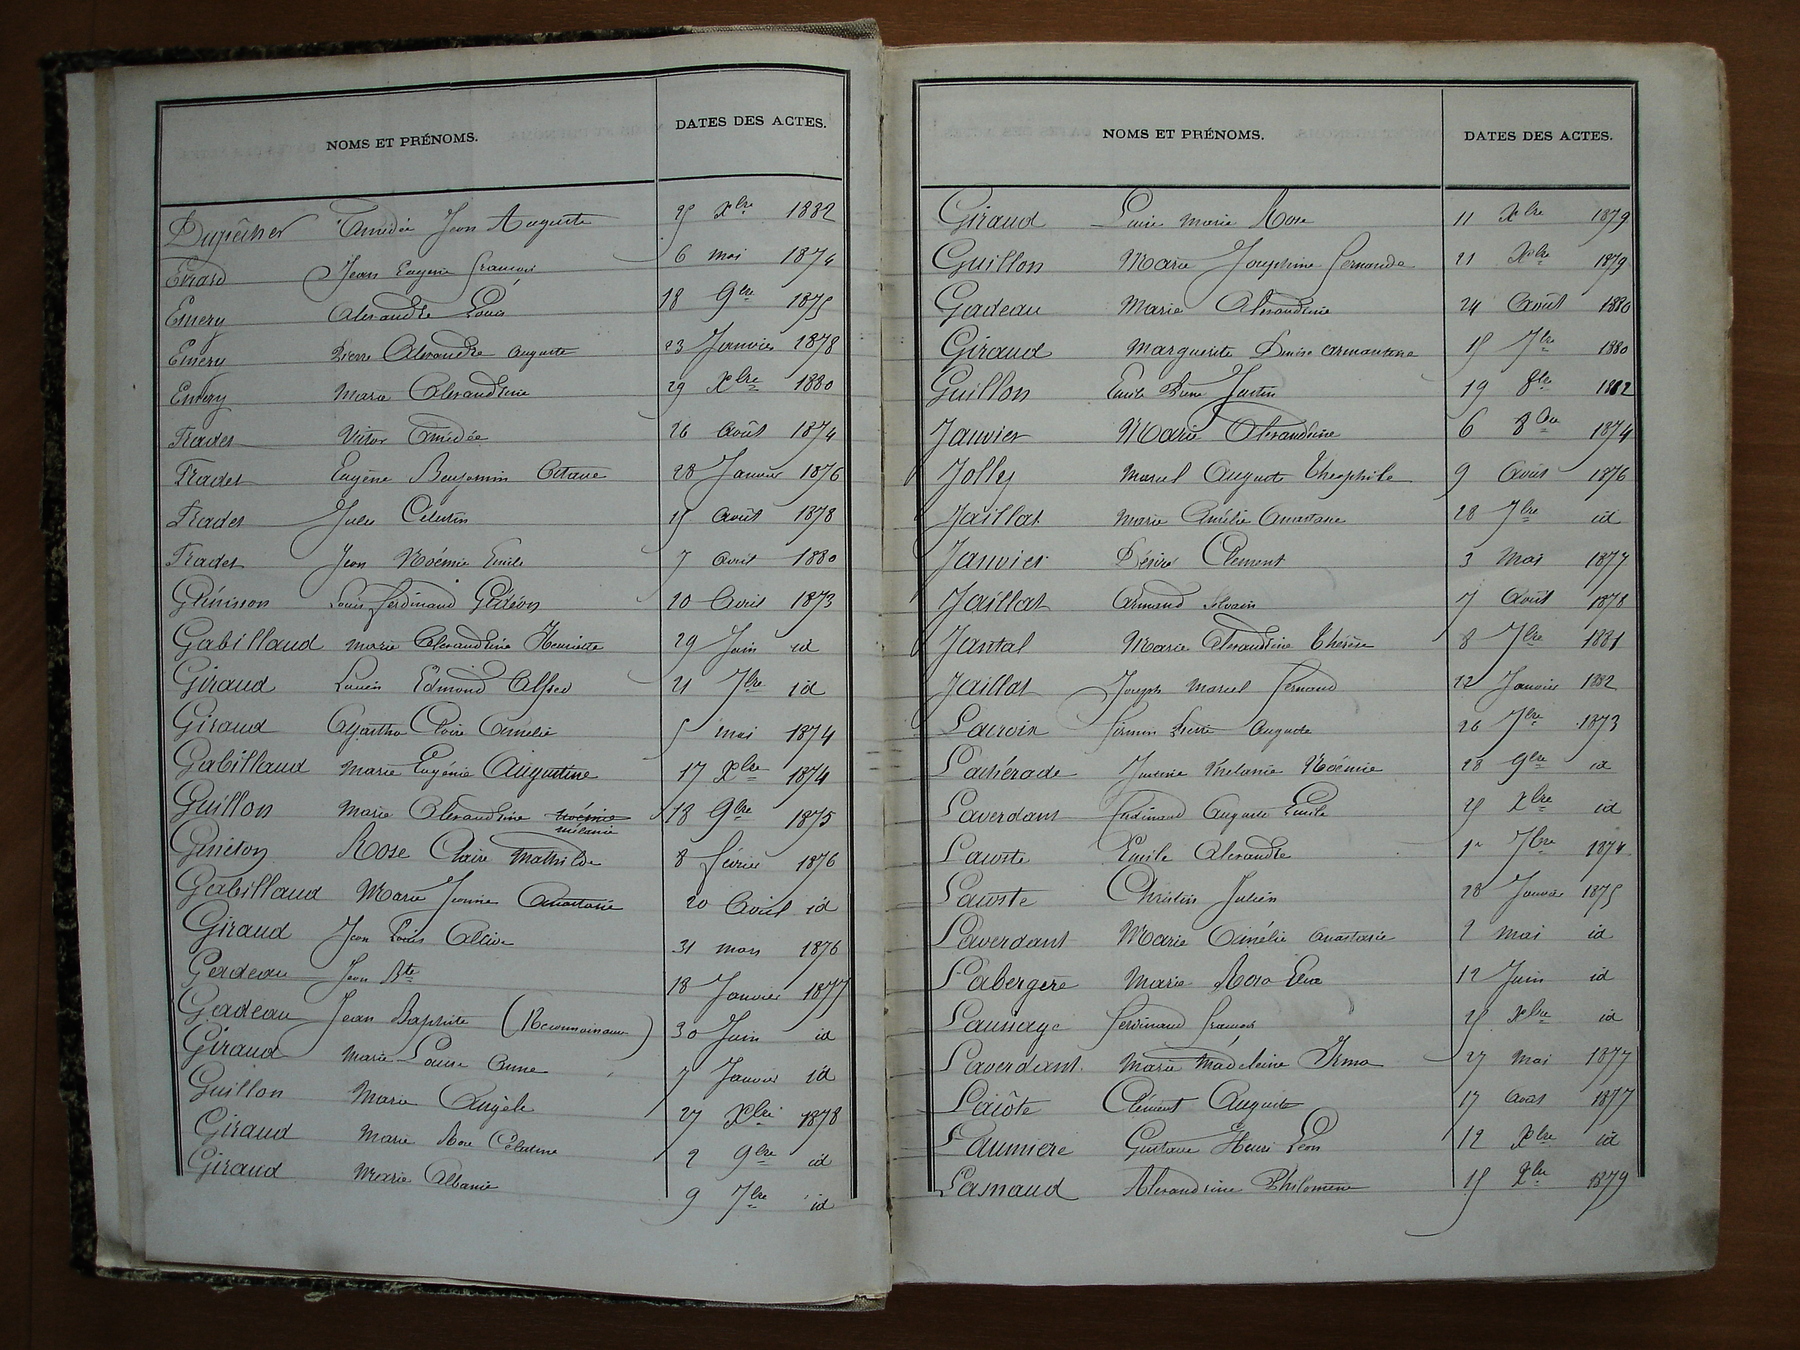 NOMS ET PRÉNOMS. DATES DES ACTES.
Amédée Jean Auguste 25 Xbre 1882
Jean Eugène François 6 mai 1874
Emery Alexandre Louis 18 9bre 1875
Emery Pierre Alexandre Auguste 23 Janvier 1878
Emery Marie Alexandrine 29 Xbre 1880
Fradet Victor Amédée 26 Août 1874
Fradet Eugène Benjamin Octave 28 Janvier 1876
Fradet Jules Célestin 15 Août 1878
Fradet Jean Noémie Emile 7 avril 1880
Génisson Louis Ferdinand Gédéon 20 Avril 1873
Gabillaud Marie Alexandrine Henriette 29 Juin id
Giraud Lucien Edmond Alfred 21 7bre id
Giraud Agatha Claire Amélie 5 mai 1874
Gabillaud Marie Eugénie Augustine 17 Xbre 1874
Guillon Marie Alexandrine noémie 18 9bre 1875
mélanie
Rose Claire Mathilde 8 février 1876
Gabillaud Marie Jeanne Anastasie 20 Avril id
Giraud Jean Louis 31 mars 1876
Gadeau Jean Bte 18 Janvier 1877
Gadeau Jean Baptiste (Reconnaissance) 30 Juin id
Giraud Marie Louise Anne 7 Janvier id
Guillon Marie Angèle 27 Xbre 1878
Giraud Marie Rose Célestine 2 9bre id
Giraud Marie Albanie 9 7bre id
NOMS ET PRÉNOMS. DATES DES ACTES.
Giraud Marie Rose 11 Xbre 1879
Guillon Marie Joséphine Fernande 21 Xbre 1879
Gadeau Marie Alexandrine 24 Août 1880
Giraud Marguerite Denise Armantine 15 7bre 1880
Guillon Emile Pierre Justin 19 8bre 1882
Janvier Marie Alexandrine 6 8bre 1874
Jolly Marcel Auguste Théophile 9 Août 1876
Jaillat Marie Amélie Anastasie 28 7bre id
Janvier Désiré Clément 3 Mai 1877
Jaillat Armand Silvain 7 Août 1878
Jantal Marie Alexandrine Thérèse 8 7bre 1881
Jaillat Joseph Marcel Fernand 22 Janvier 1882
Lacroix Firmin Pierre Auguste 26 7bre 1873
Mélanie Noémie 28 9bre id
Laverdant Ferdinand Auguste Emile 25 Xbre id
Lacoste Emile Alexandre 1er 7bre 1874
Lacoste Christin Julien 28 Janvier 1875
Laverdant Marie Amélie Anastasie 2 Mai id
Labergère Marie Rosa 12 Juin id
Ferdinand François 25 Xbre id
Laverdant Marie Madeleine Irma 27 Mai 1877
Clément Auguste 17 Août 1877
Laumière Gustave Henri Léon 12 Xbre id
Lamaud Alexandrine Philomène 15 Xbre 1879